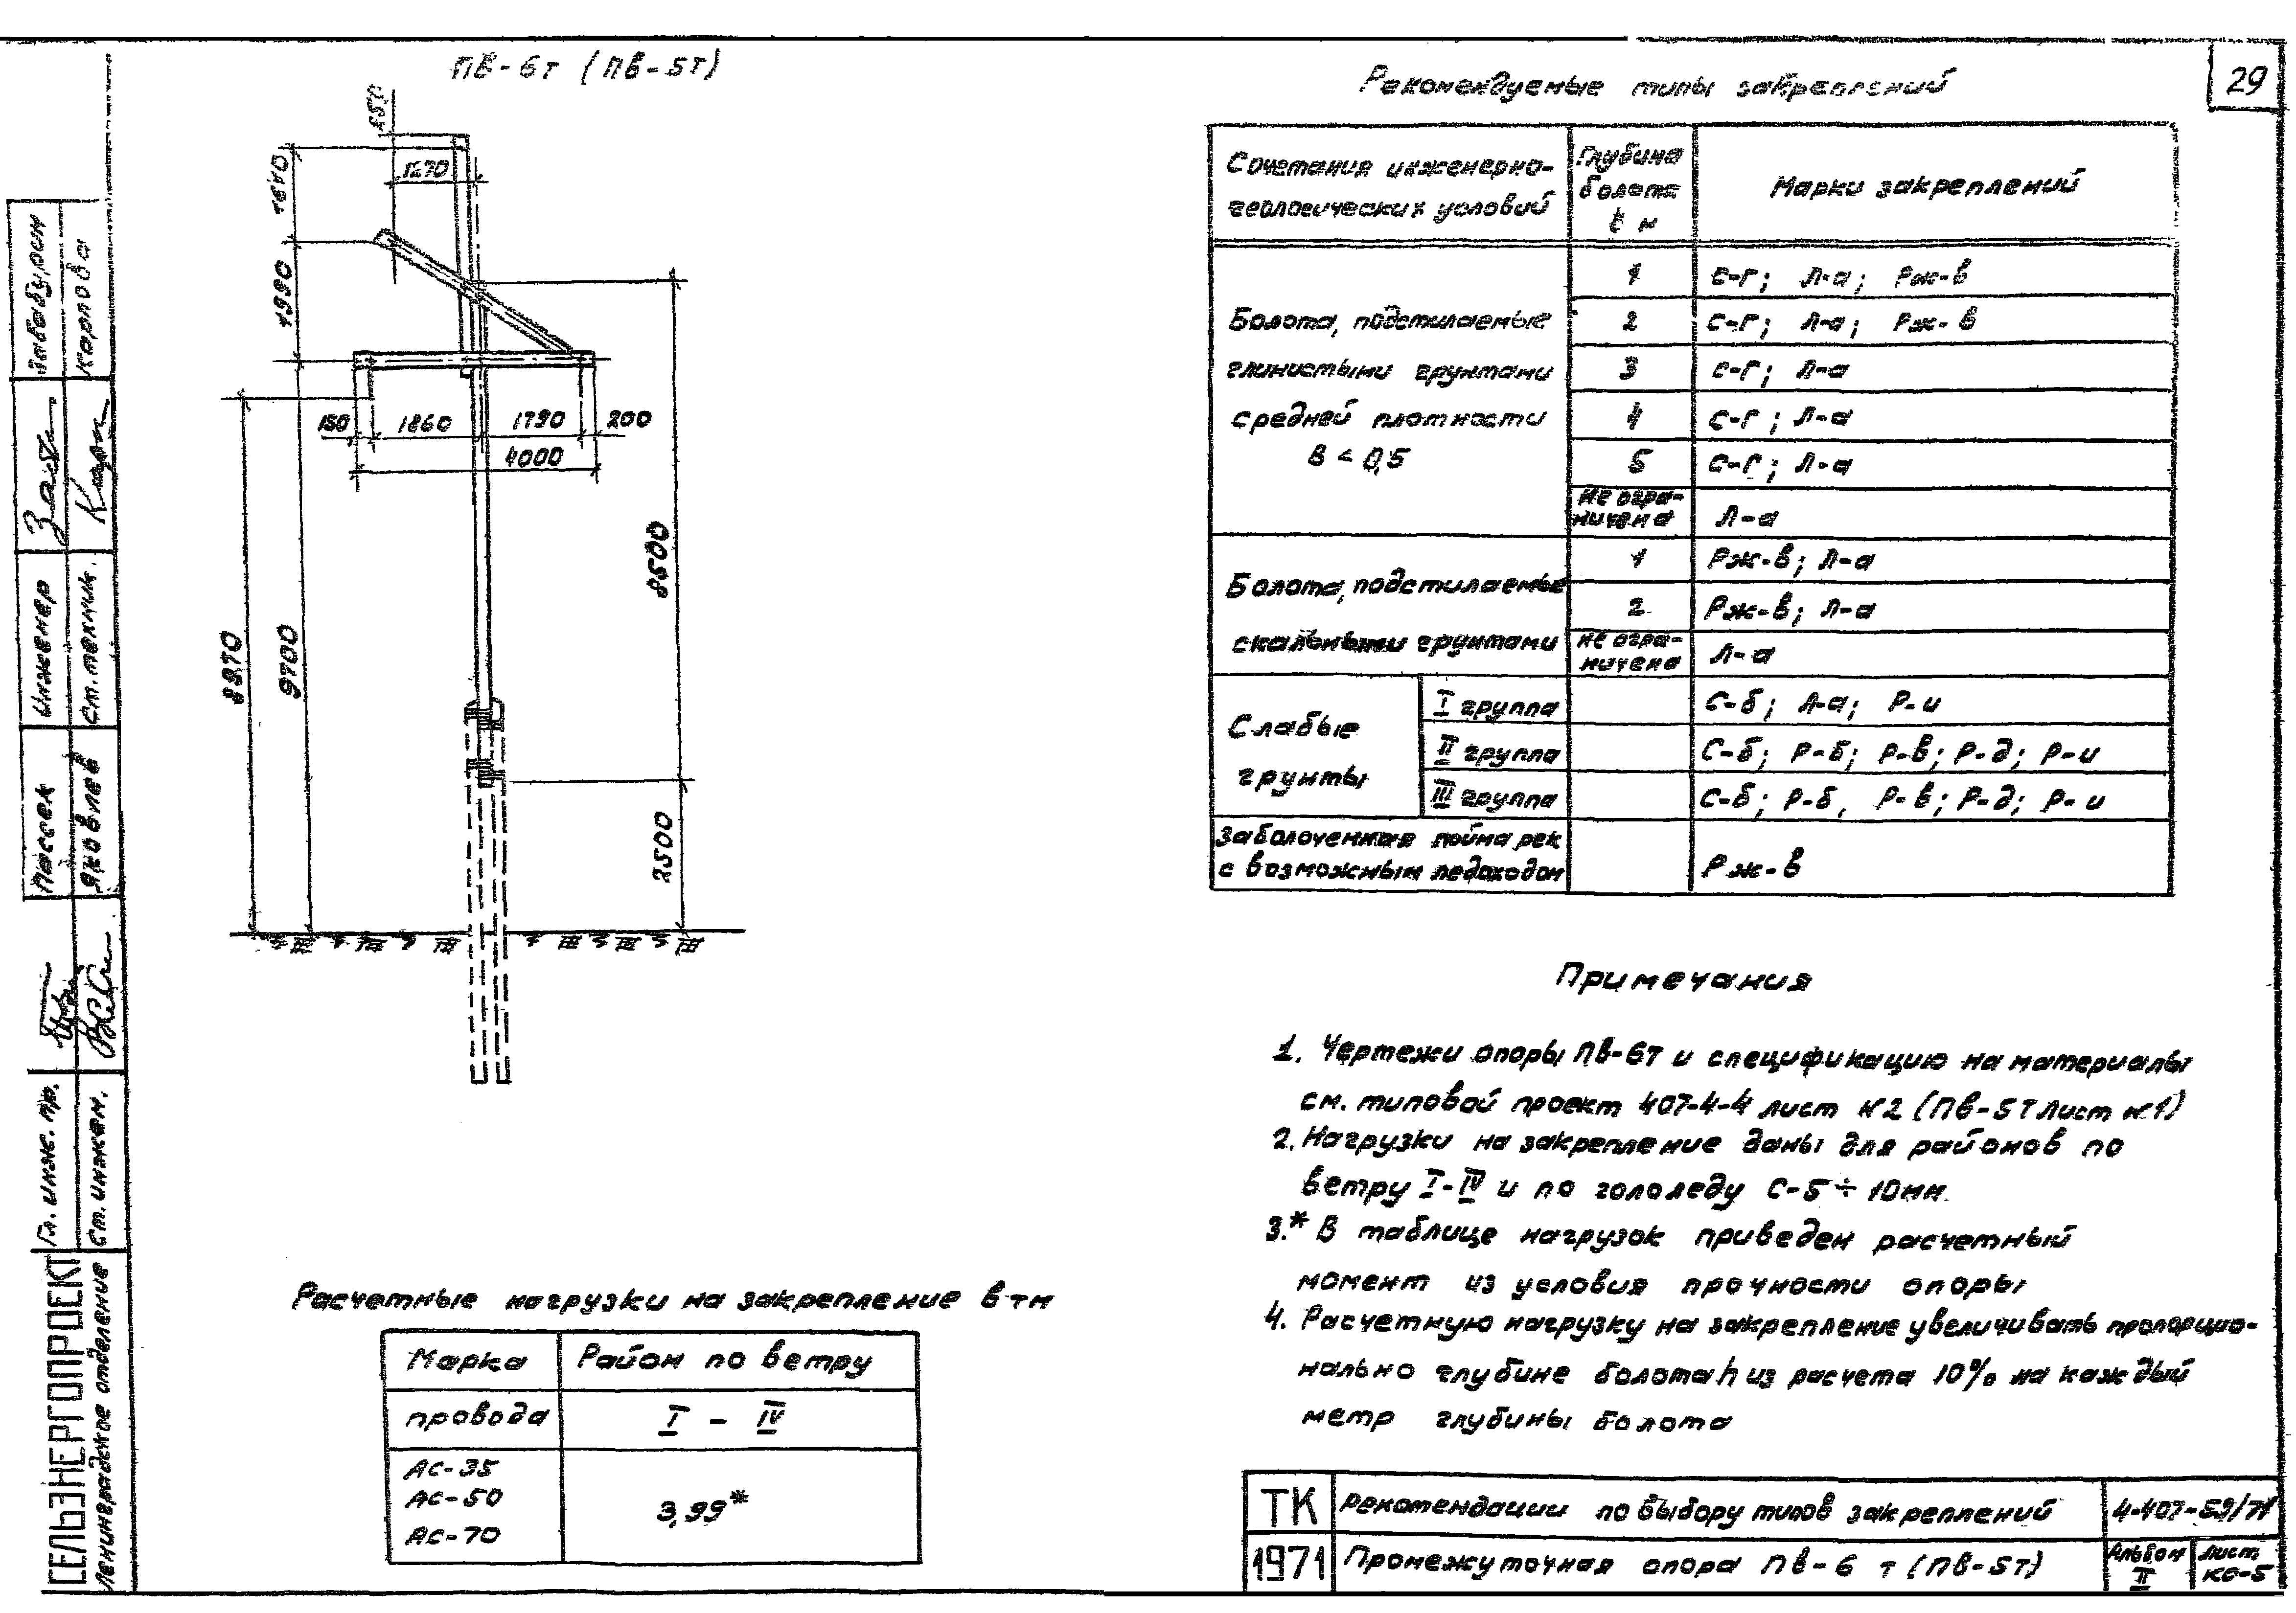 ПВ-6т (ПВ-5т)
250
1270
1640
1990
150
1860
1790
200
4000
8500
8870
9700
2500
Расчетные нагрузки на закрепление в тм
Марка
провода
Район по ветру
I - IV
АС-35
АС-50
АС-70
3,99*
29
Рекомендуемые типы закреплений
Сочетания инженерно-
геологических условий
Глубина
болота
t м
Марки закреплений
Болота, подстилаемые
глинистыми грунтами
средней плотности
В < 0,5
1
С-Г; Л-а; Рж-в
2
С-Г; Л-а; Рж-в
3
С-Г; Л-а
4
С-Г; Л-а
5
С-Г; Л-а
не огра-
ничена
Л-а
Болота, подстилаемые
скальными грунтами
1
Рж-в; Л-а
2
Рж-в; Л-а
не огра-
ничена
Л-а
Слабые
грунты
I группа
С-б; Л-а; Р-и
II группа
С-б; Р-б; Р-в; Р-д; Р-и
III группа
С-б; Р-б, Р-в; Р-д; Р-и
Заболоченная пойма рек
с возможным ледоходом
Рж-в
Примечания
1. Чертежи опоры ПВ-6т и спецификацию на материалы
см. типовой проект 407-4-4 лист К2 (ПВ-5т Лист К1)
2. Нагрузки на закрепление даны для районов по
ветру I-IV и по гололеду С-5÷10мм.
3.* В таблице нагрузок приведен расчетный
момент из условия прочности опоры
4. Расчетную нагрузку на закрепление увеличивать пропорцио-
нально глубине болота h из расчета 10% на каждый
метр глубины болота
ТК
1971
Рекомендации по выбору типов закреплений
Промежуточная опора ПВ-6 т (ПВ-5т)
4-407-59/71
Альбом
II
Лист
КО-5
СЕЛЬЭНЕРГОПРОЕКТ
Ленинградское отделение
Гл. инж. пр.
Ст. инжен.
Пассек
Яковлев
Инженер
Ст. техник.
Карпова